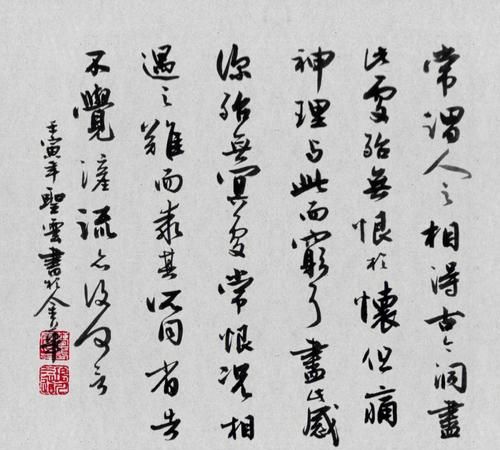 常謂人之相得古今洞盡
此處殆無恨於懷但痛
神理与此而窮耳盡此感
深殆無冥處常恨況相
遇之難而乖其所同省告
不覺流亦復何言
壬寅年聖雲書於金華